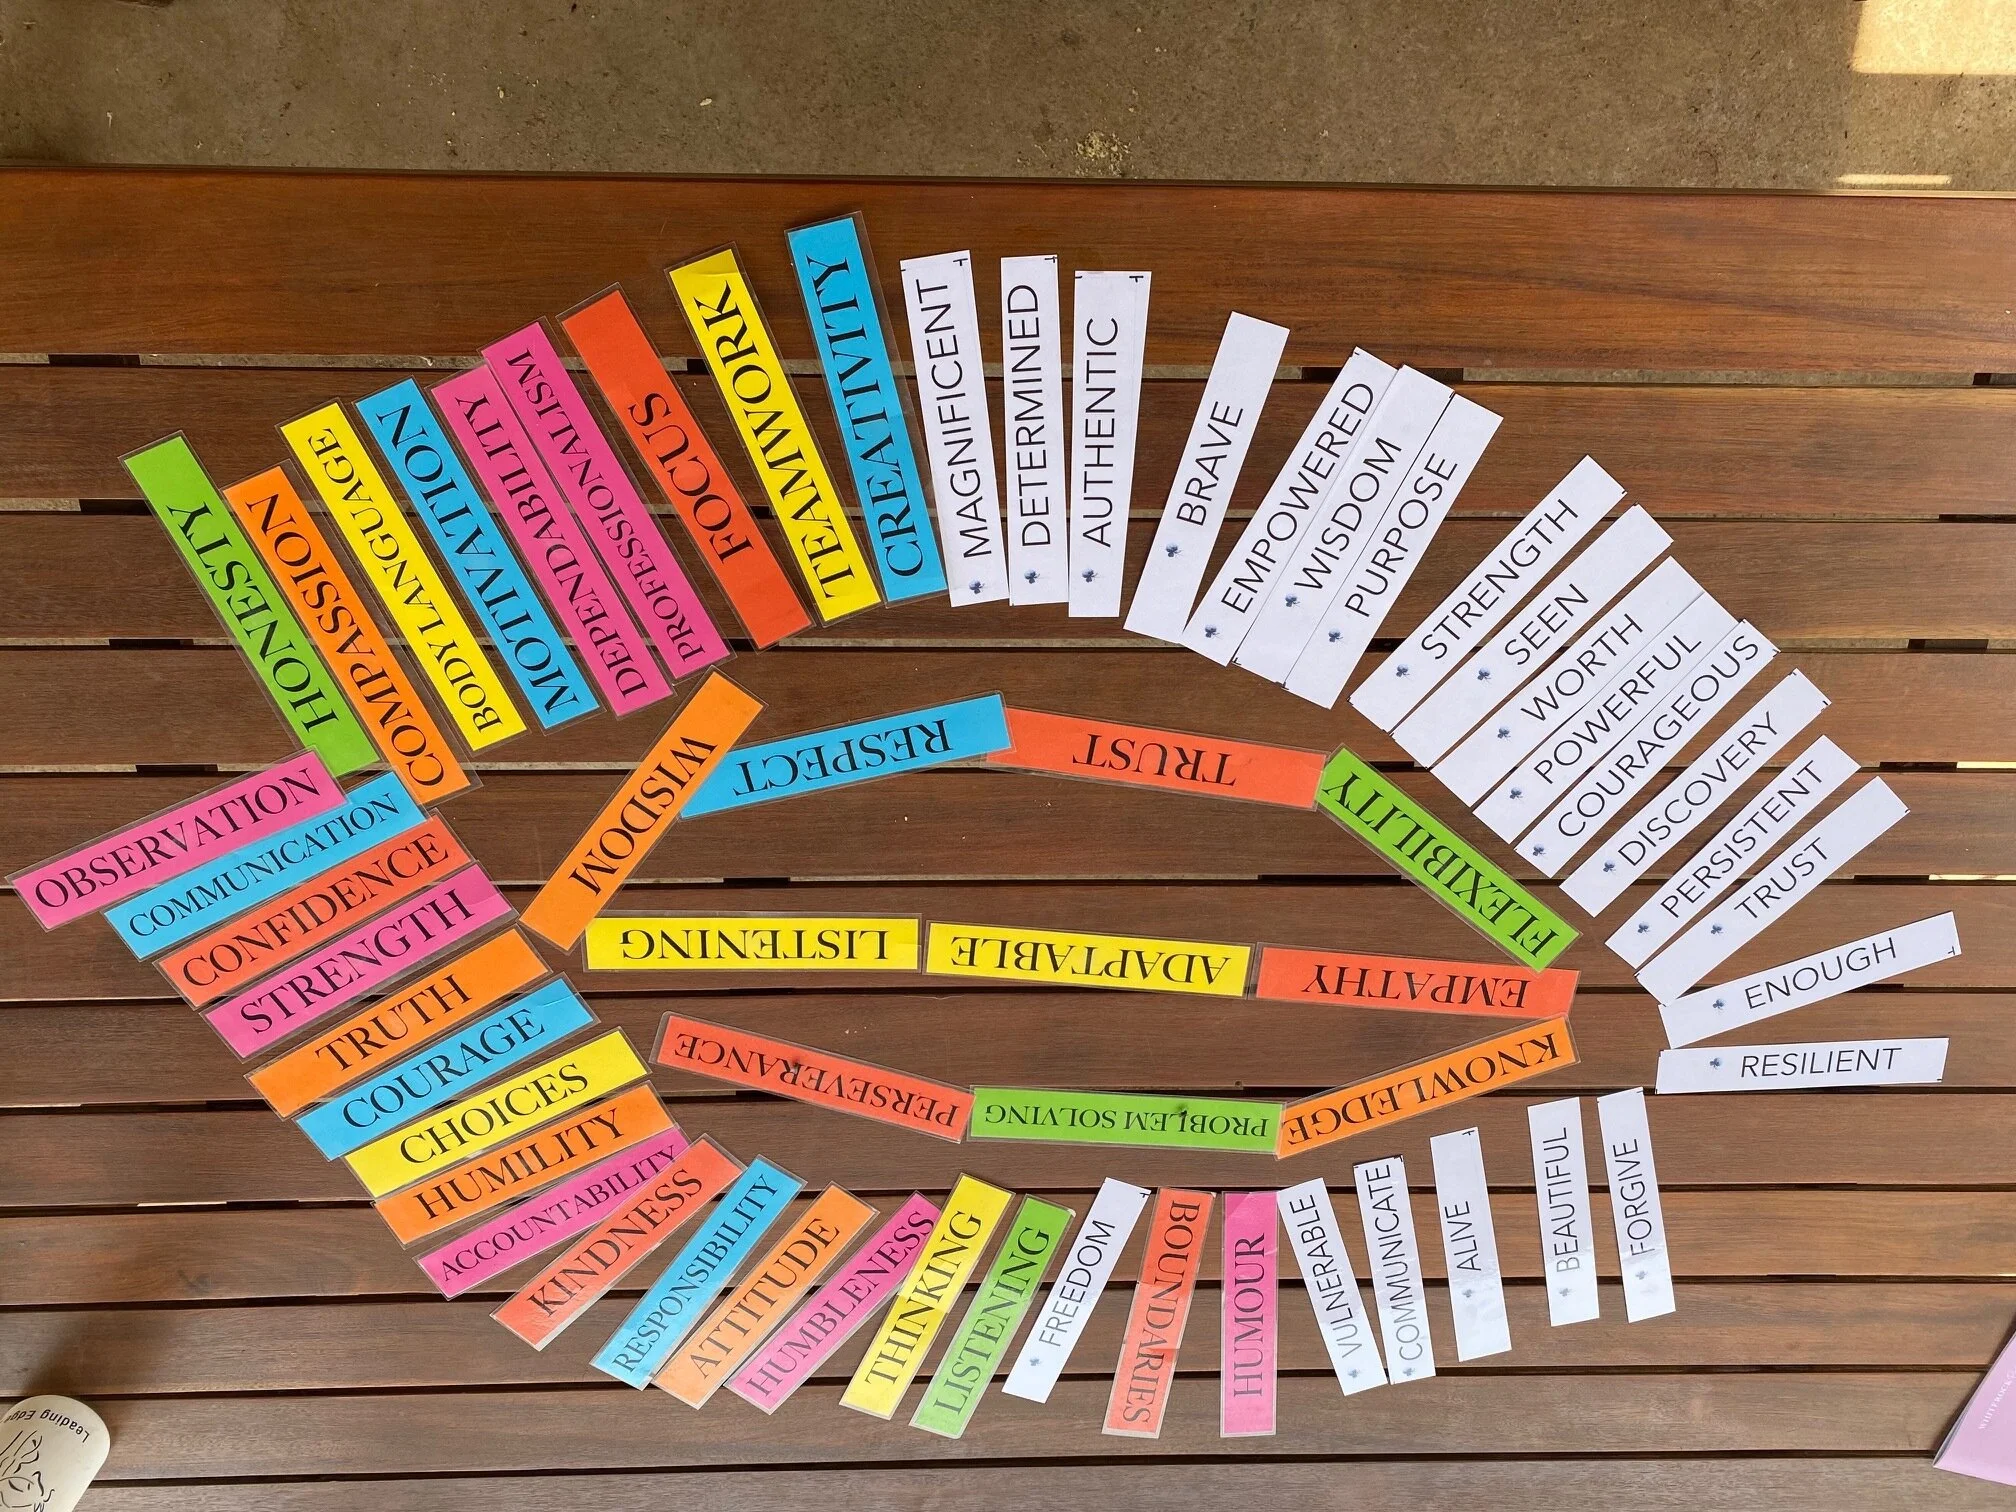 HONESTY
COMPASSION
BODY LANGUAGE
MOTIVATION
DEPENDABILITY
PROFESSIONALISM
FOCUS
TEAMWORK
CREATIVITY
MAGNIFICENT
DETERMINED
AUTHENTIC
BRAVE
EMPOWERED
WISDOM
PURPOSE
STRENGTH
SEEN
WORTH
POWERFUL
COURAGEOUS
DISCOVERY
PERSISTENT
TRUST
ENOUGH
RESILIENT
WISDOM
RESPECT
TRUST
FLEXIBILITY
LISTENING
ADAPTABLE
EMPATHY
PERSEVERANCE
PROBLEM SOLVING
KNOWLEDGE
OBSERVATION
COMMUNICATION
CONFIDENCE
STRENGTH
TRUTH
COURAGE
CHOICES
HUMILITY
ACCOUNTABILITY
KINDNESS
RESPONSIBILITY
ATTITUDE
HUMBLENESS
THINKING
LISTENING
FREEDOM
BOUNDARIES
HUMOUR
VULNERABLE
COMMUNICATE
ALIVE
BEAUTIFUL
FORGIVE
Leading Edge